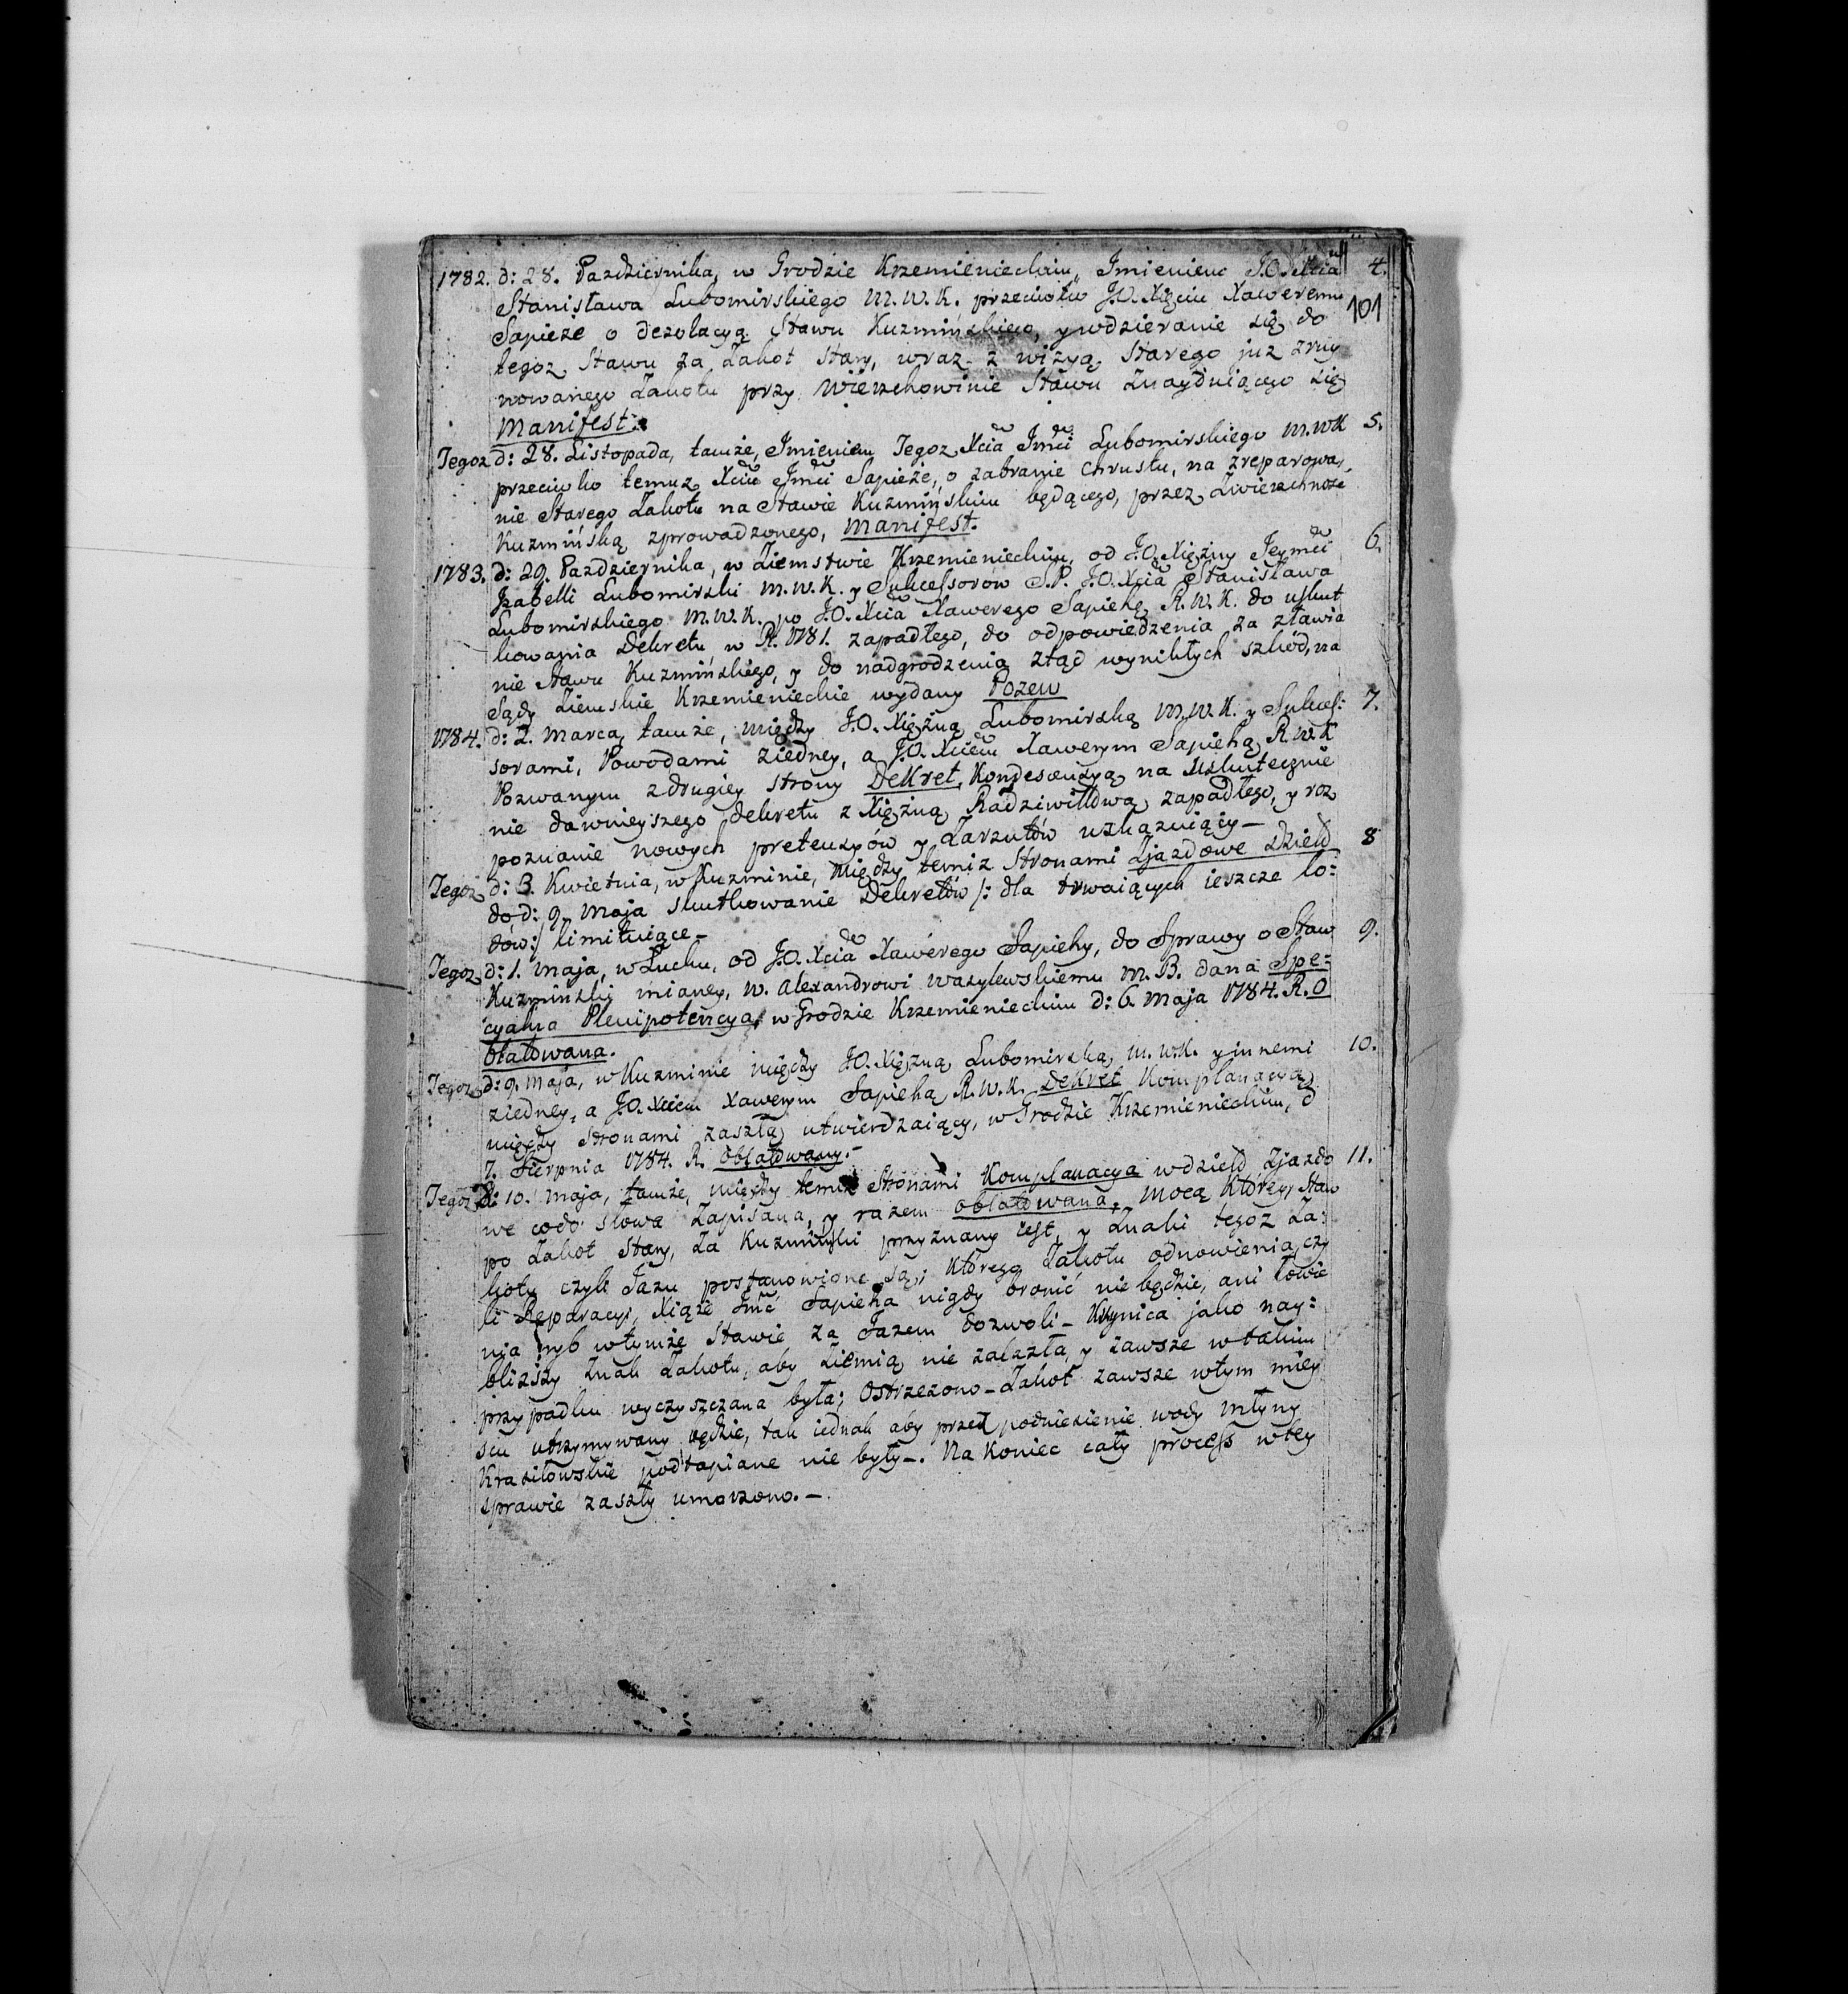 1782. d: 28. Pazdziernika, w Grodzie Krzemienieckim, Imieniem J.O. Xcia 4.
Stanisława Lubomirskiego M.W.K. przeciwko J.O. Xięciu Xaweremu 101
Sapieże o dezolacyą Stawu Kuzmińskiego, y wdzieranie się do
tegoz Stawu za Zakot Stary, wraz z wizyą Starego juz zruy
nowanego Zakotu przy Wierzchowinie Stawu znayduiącego się
Manifest.
Tegoz d: 28. Listopada, tamże, Imieniem Tegoz Xcia Imci Lubomirskiego M.W.K 5.
przeciwko temuz Xciu Imci Sapieże, o zabranie Chrustu, na zreparowa,
nie Starego Zakotu na Stawie Kuzmińskim będącego, przez Zwierzchnosc
Kuzmińską zprowadzonego, Manifest.
1783. d: 29. Pazdziernika, w Ziemstwie Krzemienieckim, od J.O. Xiężny Jeymci 6.
Izabelli Lubomirski M.W.K. y Sukcessorow S.P. J.O. Xcia Stanisława
Lubomirskiego M.W.K. po J.O. Xcia Xawerego Sapiehę R.W.K. do uskut
kowania Dekretu w R. 1781. zapadłego, do odpowiedzenia za zławia
nie Stawu Kuzmińskiego, y do nadgrodzenia ztąd wynikłych szkod, na
Sądy Ziemskie Krzemienieckie wydany Pozew
1784. d: 2. Marca, tamże, między J.O. Xiężną Lubomirską M.W.K. y Sukces: 7.
sorami, Powodami ziedney, a J.O. Xciem Xawerym Sapiehą R.W.K
Pozwanym z drugiey strony Dekret, Kondescensyą na Uskutecznie
nie dawnieyszego dekretu z Xiężną Radziwiłłową zapadłego, y roz
poznanie nowych pretensyów y Zarzutów wskazuiący –
Tegoż d: 3. Kwietnia, w Kuzminie, między temiz Stronami Zjazdowe dzieło 8
do d: 9. Maja skutkowanie Dekretów /: dla trwaiących ieszcze lo:
dów :/ limituiące –
Tegoz d: 1. Maja, w Łucku, od J.O. Xcia Xawerego Sapiehy, do Sprawy o Staw 9.
Kuzmiński mianey, W. Alexandrowi Wasylewskiemu M.B. dana Spe=
cyalna Plenipotencya, w Grodzie Krzemienieckim d: 6. Maja 1784. R. O
blatowana.
Tegoz d: 9. Maja, w Kuzminie między J.O. Xiężną Lubomirską M.W.K. y innemi 10.
ziedney, a J.O. Xciem Xawerym Sapiehą R.W.K. Dekret Komplanacyą
między Stronami zaszłą utwierdzaiący, w Grodzie Krzemienieckim, d
7. Sierpnia 1784. R. Oblatowany. –
Tegoż d: 10. Maja, tamże, między temiz Stronami Komplanacya w dzieło Zjazdo 11.
we co do słowa Zapisana, y razem oblatowana, mocą Ktorey, Staw
po Zakot Stary, za Kuzmiński przyznany iest, y Znaki tegoz Za:
kotu czyli Jazu postanowione są; którego Zakotu odnowienia, czy
li Reparacyi, Xiąże Jmć Sapieha nigdy bronić nie będzie, ani łowie
nia ryb w tymże Stawie za Jazem dozwoli – Krynica jako nay:
bliższy Znak Zakotu, aby Ziemią nie zalazła, y zawsze w takim
przypadku wyczyszczana była; Ostrzeżono – Zakot zawsze w tym miey
scu utrzymywany będzie, tak iednak aby przez podniesienie wody Młyny
Krasiłowskie podtapiane nie były –. Na Koniec cały process w tey
sprawie zaszły umorzono. –